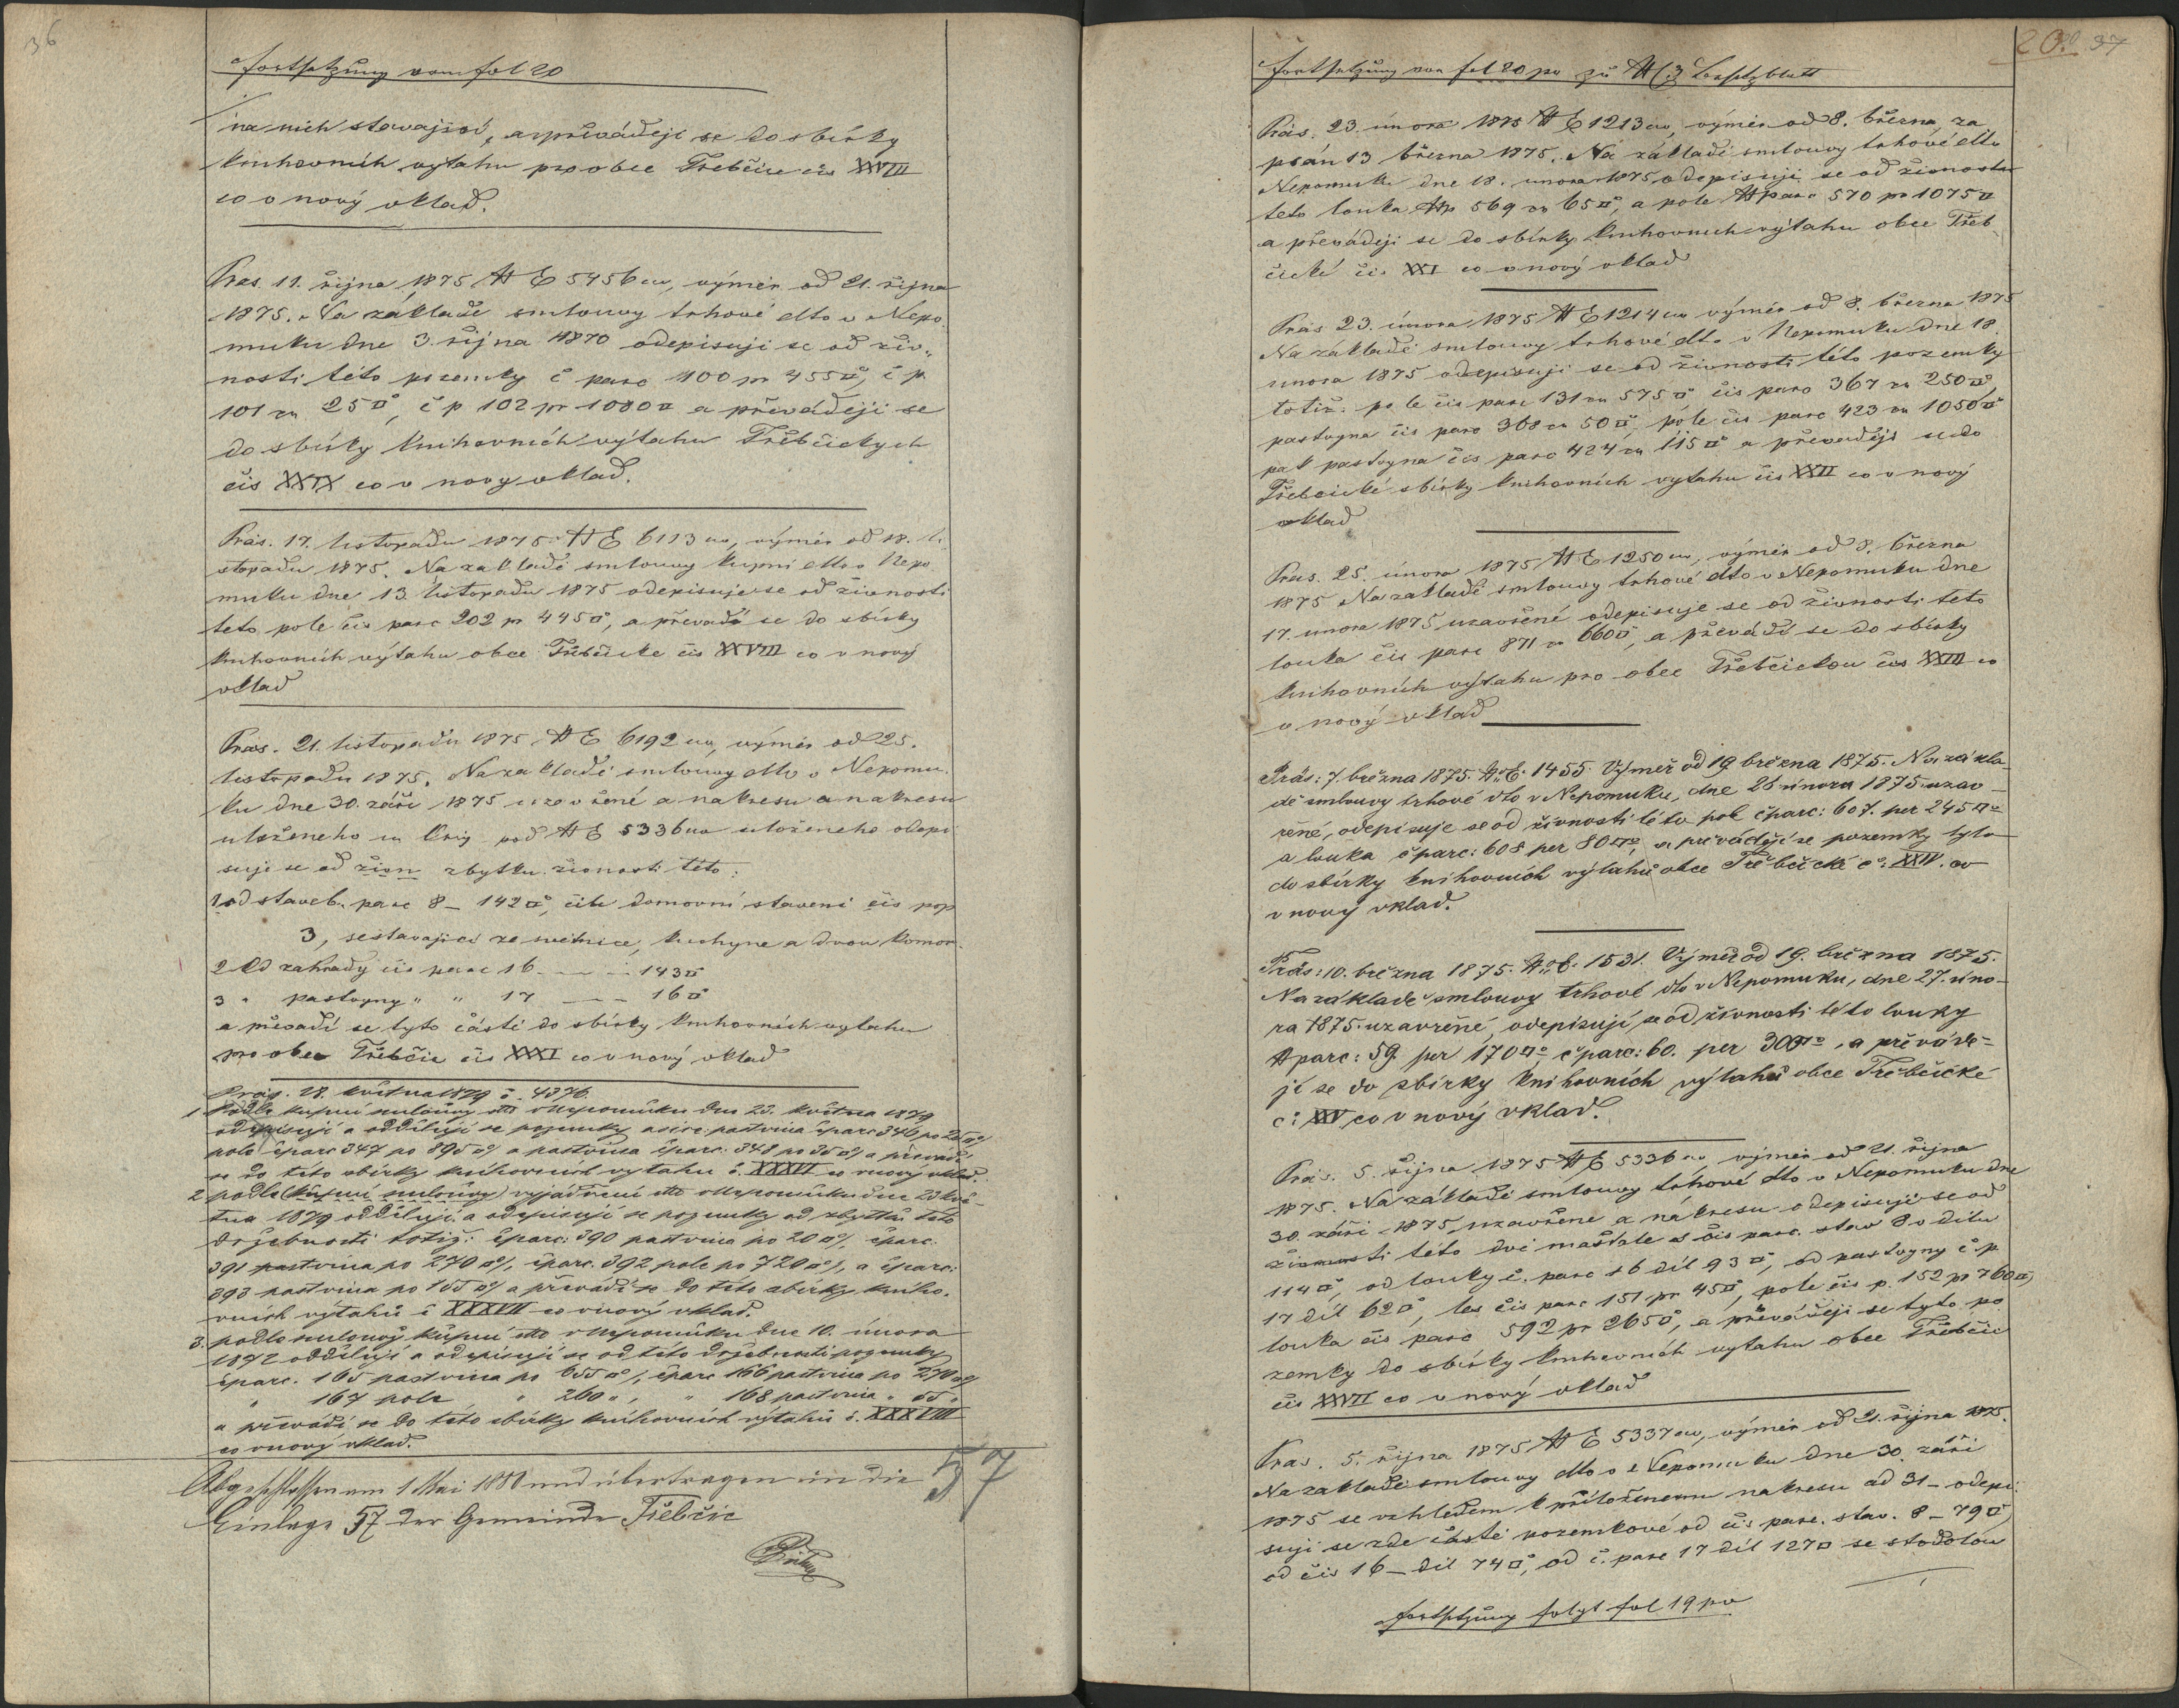 36
Fortsetzung vom fol 20
na nich stavající, a převádějí se do sbírky
knihovních výtahu pro obec Třebčice čís XXVIII
co v nový vklad.
Pras. 11. října 1875 № E 5456 civ, výměr od 21. října
1875. Na základě smlouvy trhové dtto v Nepo
muku dne 3. října 1870 odepisuji se od živ„
nosti této pozemky č parc 100 pr 455□°, č p
101 za 25□°, č p 102 pr 1080□ a převádějí se
do sbírky knihovních výtahu Třebčických
čís XXIX co v novy vklad.
Präs. 17. listopadu 1875 № E 6113 civ, výměr od 18. li
stopadu 1875. Na zakladě smlouvy kupní dtto v Nepo
muku dne 13. listopadu 1875 odepisuje se od živnosti
teto pole čís parc 202 pr 445□°, a převadí se do sbírky
knihovních výtahu obce Třebčicke čís XXVIII co v nový
vklad
Präs. 21. listopadu 1875 № E 6192 civ, výměr od 25.
listopadu 1875. Na zakladě smlouvy dtto v Nepomu
ku dne 30. září 1875 uzavřené a nakresu a nakresu
uloženeho in Orig pod № E 5336 civ uloženeho odepi
suje se od živn zbytku živnosti této:
1. od staveb. parc 8 – 142□°, čili domovní stavení čís pop
3, sestavající ze světnice, kuchyne a dvou komor
2 Od zahrady čís parc 16 — — 143□
3 „ pastvyny „ „ 17 — — 16□
a převadí se tyto části do sbírky knihovních vytahu
pro obec Třebčic čís XXXI co v nový vklad
Präs. 28. května 1879 č. 4376.
1 Podle kupní smlouvy dtto v Nepomuku dne 23. května 1879
odepisují a oddělují se pozemky a sice: pastvina čparc 346 po 25□°,
pole čparc 347 po 895□° a pastvina čparc. 348 po 35□° a převadí
se do této sbírky knihovních vytahu č. XXXVI co v nový vklad.
2 podle (kupní smlouvy) vyjádření dtto v Nepomuku dne 23 kvě-
tna 1879 oddělují a odepisují se pozemky od zbytku této
držebnosti totiž: čparc: 390 pastvina po 20□°, čparc.
391 pastvina po 270□°, čparc. 392 pole po 720□°, a čparc:
393 pastvina po 155□° a převádí se do této sbírky kniho-
vních výtahů č XXXVII co v nový vklad.
3. podle smlouvy kupní dtto v Nepomuku dne 10. února
1872 oddělují a odepisují se od této držebnosti pozemky
čparc. 165 pastvina po 655□°, čparc 166 pastvina po 270□°
„ 167 pole „ 260 „, „ 168 pastvina „ 55 „
a převádí se do této sbírky knihovních výtahů č. XXXVIII
co v nový vklad.
Abgeschlossen am 1 Mai 1880 und übertragen in die
Einlage 57 der Gemeinde Třebčic
57
20 37
Fortsetzung von fol 20 po zu № 3 Besitzblatt
Präs. 23. února 1875 № E 1213 civ, výměr od 8. března, za
psán 13 března 1875. Na základě smlouvy trhové dtto
Nepomuku dne 18. unora 1875 odepisuji se od živnosti
teto louka №p 569 za 65□°, a pole № parc 570 pr 1075□
a převádějí se do sbírky knihovních výtahu obce Třeb
čické čís XXI co v nový vklad
Präs 23. února 1875 № E 1214 civ výměr od 8. března 1875
Na základě smlouvy trhové dtto v Nepomuku dne 18.
unora 1875 odepisuji se od živnosti této pozemky
totiž: pole čís parc 131 za 575□° čís parc 367 za 250□°,
pastvyna čís parc 368 za 50□°, pole čís parc 423 za 1050□°
pak pastvyna čís parc 424 za 115□° a převadějí se do
Třebčické sbírky knihovních vytahu čís XXII co v nový
vklad
Präs. 25. února 1875 № E 1250 civ, výměr od 8. března
1875 Na zakladě smlouvy trhové dtto v Nepomuku dne
17. unora 1875 uzavřené odepisuje se od živnosti teto
louka čís parc 871 za 660□°, a převádí se do sbírky
knihovních výtahu pro obec Třebčickou čís XXIII co
v nový vklad
Präs: 7. března 1875. № E. 1455. Výměř od 19. března 1875. Na zákla-
dě smlouvy trhové dto v Nepomuku, dne 26 února 1875 uzav-
řéné, odepisuje se od živnosti této pole čparc: 607. per 245□°
a louka čparc: 608 per 80□°, a převádějí se pozemky tyto
do sbírky knihovních výtahů obce Třebčické č: XXIV. co
v nový vklad.
Präs: 10. března 1875. № E. 1531. Výměř od 19. března 1875.
Na základě smlouvy trhové dto v Nepomuku, dne 27. úno-
ra 1875. uzavřéné, odepisují se od živnosti této louky
№ parc: 59. per 170□° čparc: 60. per 300□°, a převádě-
jí se do sbírky knihovních výtahů obce Třebčické
č: XXV co v nový vklad.
Präs. 5. října 1875 № E 5336 civ výměr od 21. října
1875. Na základě smlouvy trhové dtto v Nepomuku dne
30. září 1875, uzavřene a nákresu odepisuji se od
živnosti této dvě maštale s čís parc. stav 8 v dílu
114□°, od louky č. parc 16 díl 93□°, od pastvyny č.p
17 díl 62□°, les čís parc 151 pr 45□°, pole čís p. 152 pr 760□
louka čís parc 592 pr 265□°, a převádějí se tyto po
zemky do sbírky knihovních vytahu obce Třebčic
čís XXVII co v nový vklad
Präs. 5. října 1875 № E 5337 civ, výměr od 21. října 1875.
Na zakladě smlouvy dtto v Nepomuku dne 30. září
1875 se vzhledem k přiloženemu nakresu ad 31 – odepi
suji se zde částí pozemkové od čís parc. stav. 8 – 79□°,
od čís 16 – díl 74□°, od č. parc 17 díl 127□ se stodolou
Fortsetzung folgt fol 19 po